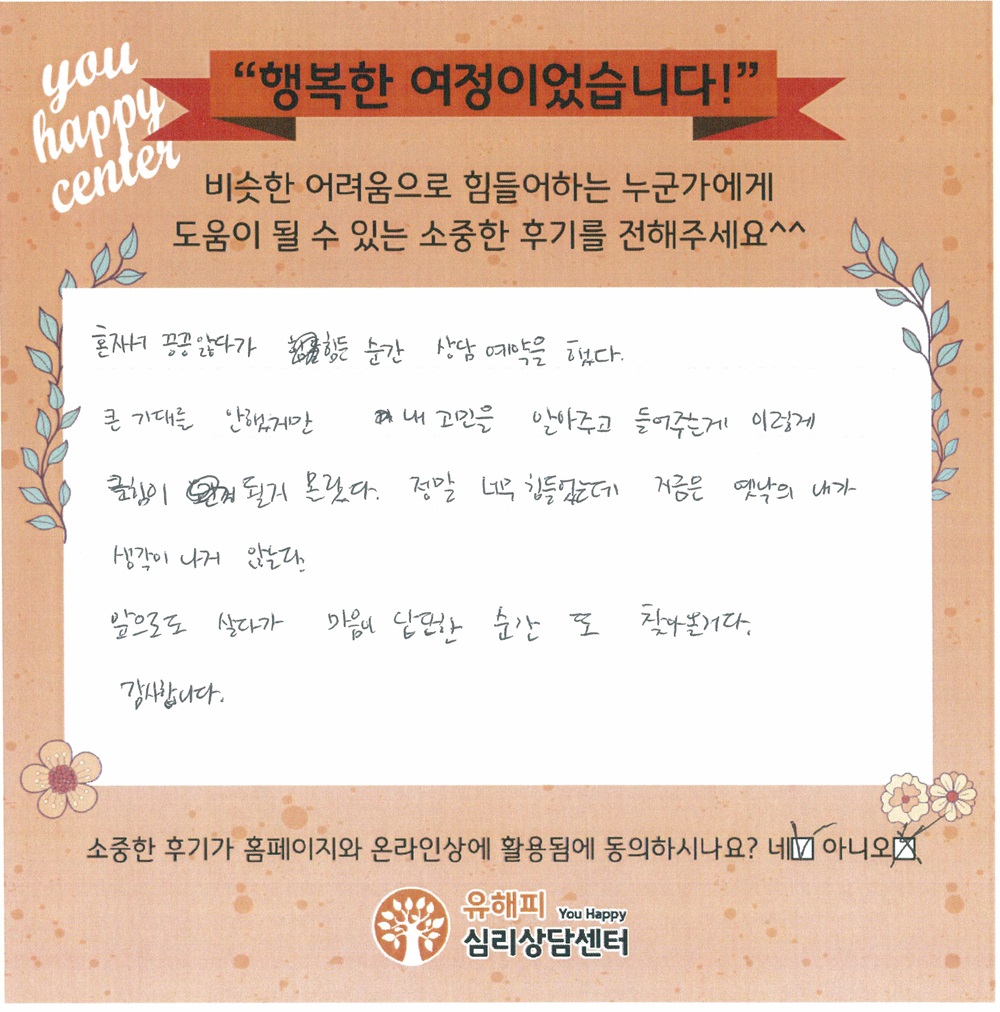 you
happy
center
“행복한 여정이었습니다!”
비슷한 어려움으로 힘들어하는 누군가에게
도움이 될 수 있는 소중한 후기를 전해주세요^^
혼자서 끙끙 앓다가 힘든 순간 상담 예약을 했다.
큰 기대를 안했지만 내 고민을 알아주고 들어주는게 이렇게
큰힘이 될지 몰랐다. 정말 너무 힘들었는데 지금은 옛날의 내가
생각이 나지 않는다.
앞으로도 살다가 마음이 답답한 순간 또 찾아올거다.
감사합니다.
소중한 후기가 홈페이지와 온라인상에 활용됨에 동의하시나요? 네 아니오
유해피 You Happy
심리상담센터